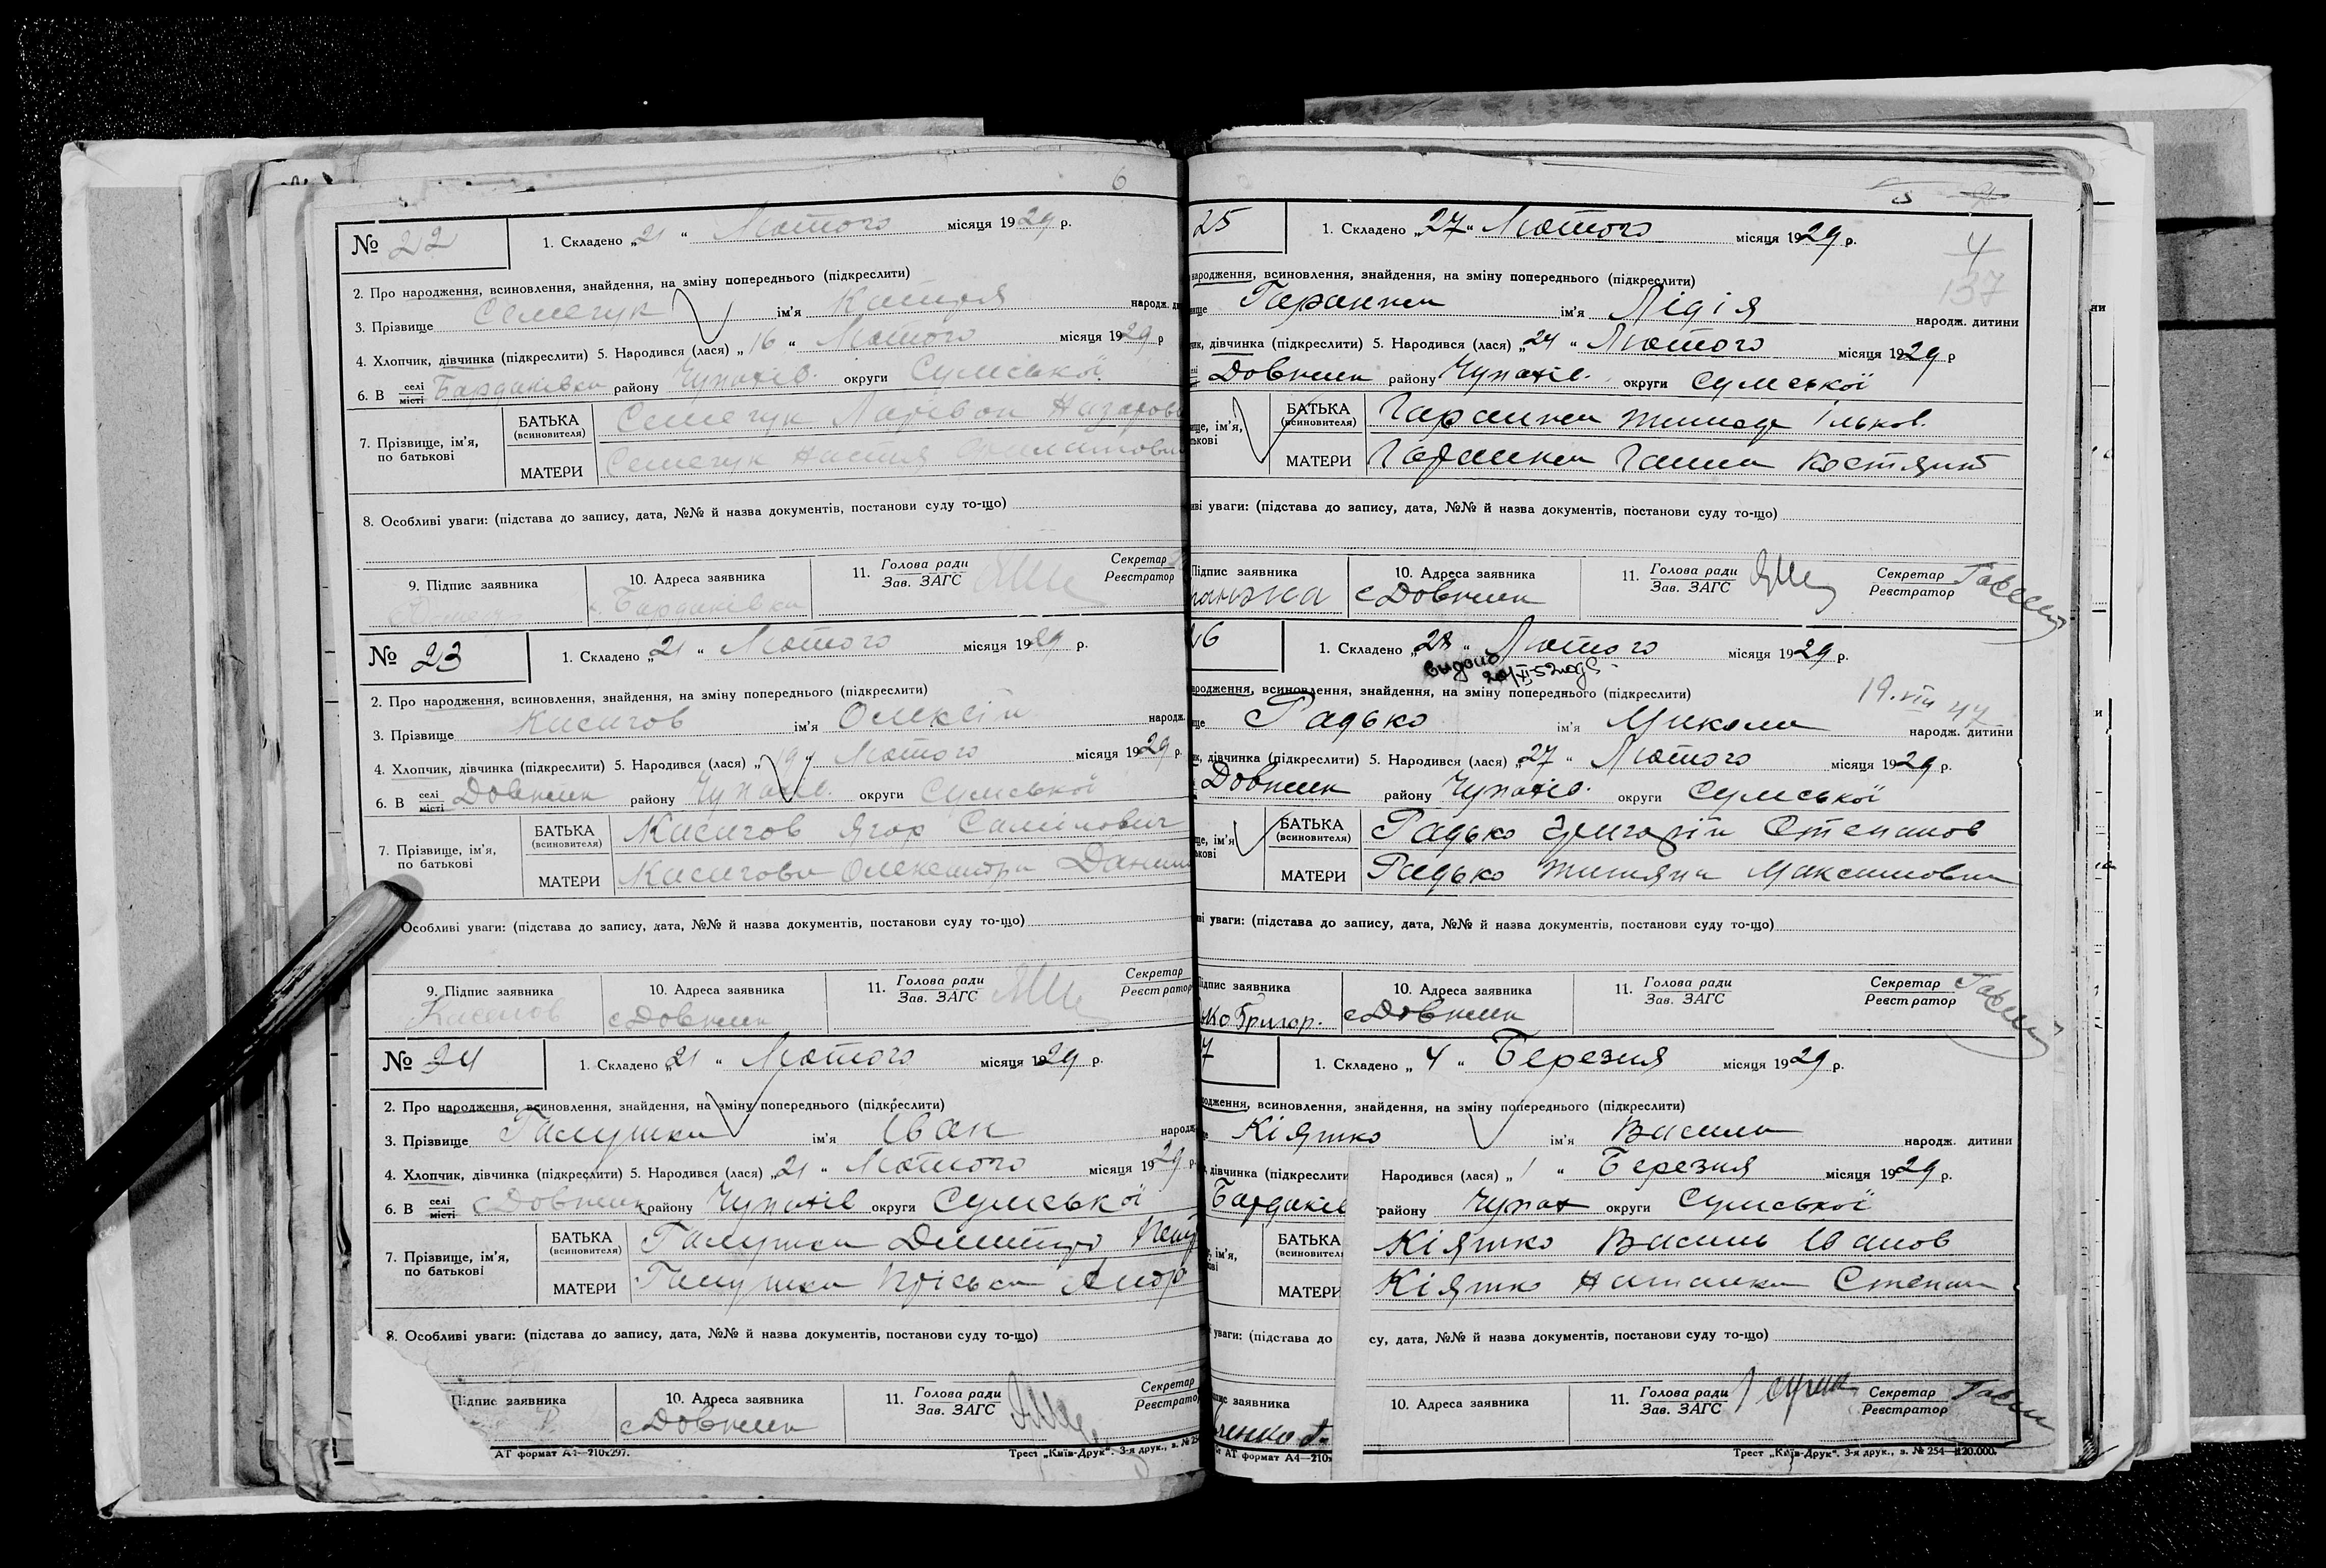 6
№ 22
1. Складено „21“ Лютого місяця 1929 р.
2. Про народження, всиновлення, знайдення, на зміну попереднього (підкреслити)
3. Прізвище Семечук ім'я Катиря народж.
4. Хлопчик, дівчинка (підкреслити) 5. Народився (лася) „16“ Лютого місяця 1929 р
6. В селі місті Бардаківка району Чупахів. округи Сумської
7. Прізвище, ім'я, по батькові
БАТЬКА (всиновителя) Семечук Ларівон Назарови
МАТЕРИ Семечук Настя
8. Особливі уваги: (підстава до запису, дата, №№ й назва документів, постанови суду то-що)
9. Підпис заявника
10. Адреса заявника с. Бардаківка
11. Голова ради Зав. ЗАГС
Секретар Реєстратор
№ 23
1. Складено „21“ Лютого місяця 1929 р.
2. Про народження, всиновлення, знайдення, на зміну попереднього (підкреслити)
3. Прізвище Кисигов ім'я Олексій народж.
4. Хлопчик, дівчинка (підкреслити) 5. Народився (лася) „19“ Лютого місяця 1929 р.
6. В селі місті Довжик району Чупахів. округи Сумської
7. Прізвище, ім'я, по батькові
БАТЬКА (всиновителя) Кисигов Ягор Самійлович
МАТЕРИ Кисигова Олександра Данил
Особливі уваги: (підстава до запису, дата, №№ й назва документів, постанови суду то-що)
9. Підпис заявника
10. Адреса заявника с Довжик
11. Голова ради Зав. ЗАГС
Секретар Реєстратор
№ 24
1. Складено „21“ Лютого місяця 1929 р.
2. Про народження, всиновлення, знайдення, на зміну попереднього (підкреслити)
3. Прізвище Галушка ім'я Іван народж
4. Хлопчик, дівчинка (підкреслити) 5. Народився (лася) „21“ Лютого місяця 1929 р.
6. В селі місті с Довжик району Чупахів округи Сумської
7. Прізвище, ім'я, по батькові
БАТЬКА (всиновителя) Галушка Дмитро Пет
МАТЕРИ Галушка Пріська Андр
8. Особливі уваги: (підстава до запису, дата, №№ й назва документів, постанови суду то-що)
Підпис заявника
10. Адреса заявника с Довжик
11. Голова ради Зав. ЗАГС
Секретар Реєстратор
АТ формат А4—210х297.
Трест „Київ-Друк“. 3-я друк., з. № 25
5
25
1. Складено „27“ Лютого місяця 1929 р.
4
137
народження, всиновлення, знайдення, на зміну попереднього (підкреслити)
ище Гаранжа ім'я Лідія народж. дитини
ик, дівчинка (підкреслити) 5. Народився (лася) „24“ Лютого місяця 1929 р
Довжик району Чупахів. округи Сумської
ище, ім'я, тькові
БАТЬКА (всиновителя) Гаранжа Тимофе Ільков.
МАТЕРИ Гаранжа Ганна Костянт
иві уваги: (підстава до запису, дата, №№ й назва документів, постанови суду то-що)
Підпис заявника ранжа
10. Адреса заявника с Довжик
11. Голова ради Зав. ЗАГС
Секретар Реєстратор
26
1. Складено „28“ Лютого місяця 1929 р.
видано
ародження, всиновлення, знайдення, на зміну попереднього (підкреслити)
19.VIII 44
ще Радько ім'я Микола народж. дитини
к, дівчинка (підкреслити) 5. Народився (лася) „27“ Лютого місяця 1929 р.
Довжик району Чупахів. округи Сумської
ще, ім'я ькові
БАТЬКА (всиновителя) Радько Григорій Степанов
МАТЕРИ Радько Титяна Максимовна
ві уваги: (підстава до запису, дата, №№ й назва документів, постанови суду то-що)
ідпис заявника ько Григор.
10. Адреса заявника с Довжик
11. Голова ради Зав. ЗАГС
Секретар Реєстратор
7
1. Складено „4“ Березня місяця 1929 р.
одження, всиновлення, знайдення, на зміну попереднього (підкреслити)
Кіяшко ім'я Василь народж. дитини
дівчинка (підкреслити Народився (лася) „1“ Березня місяця 1929 р.
Бардаків району Чупах округи Сумської
ім'я,
БАТЬКА (всиновителя Кіяшко Василь Іванов
МАТЕРИ Кіяшко Наталка Степан
уваги: (підстава до су, дата, №№ й назва документів, постанови суду то-що)
пис заявника
10. Адреса заявника
11. Голова ради Зав. ЗАГС
Секретар Реєстратор
АТ формат А4—210х
Трест „Київ-Друк“. 3-я друк., з. № 254—120.000.